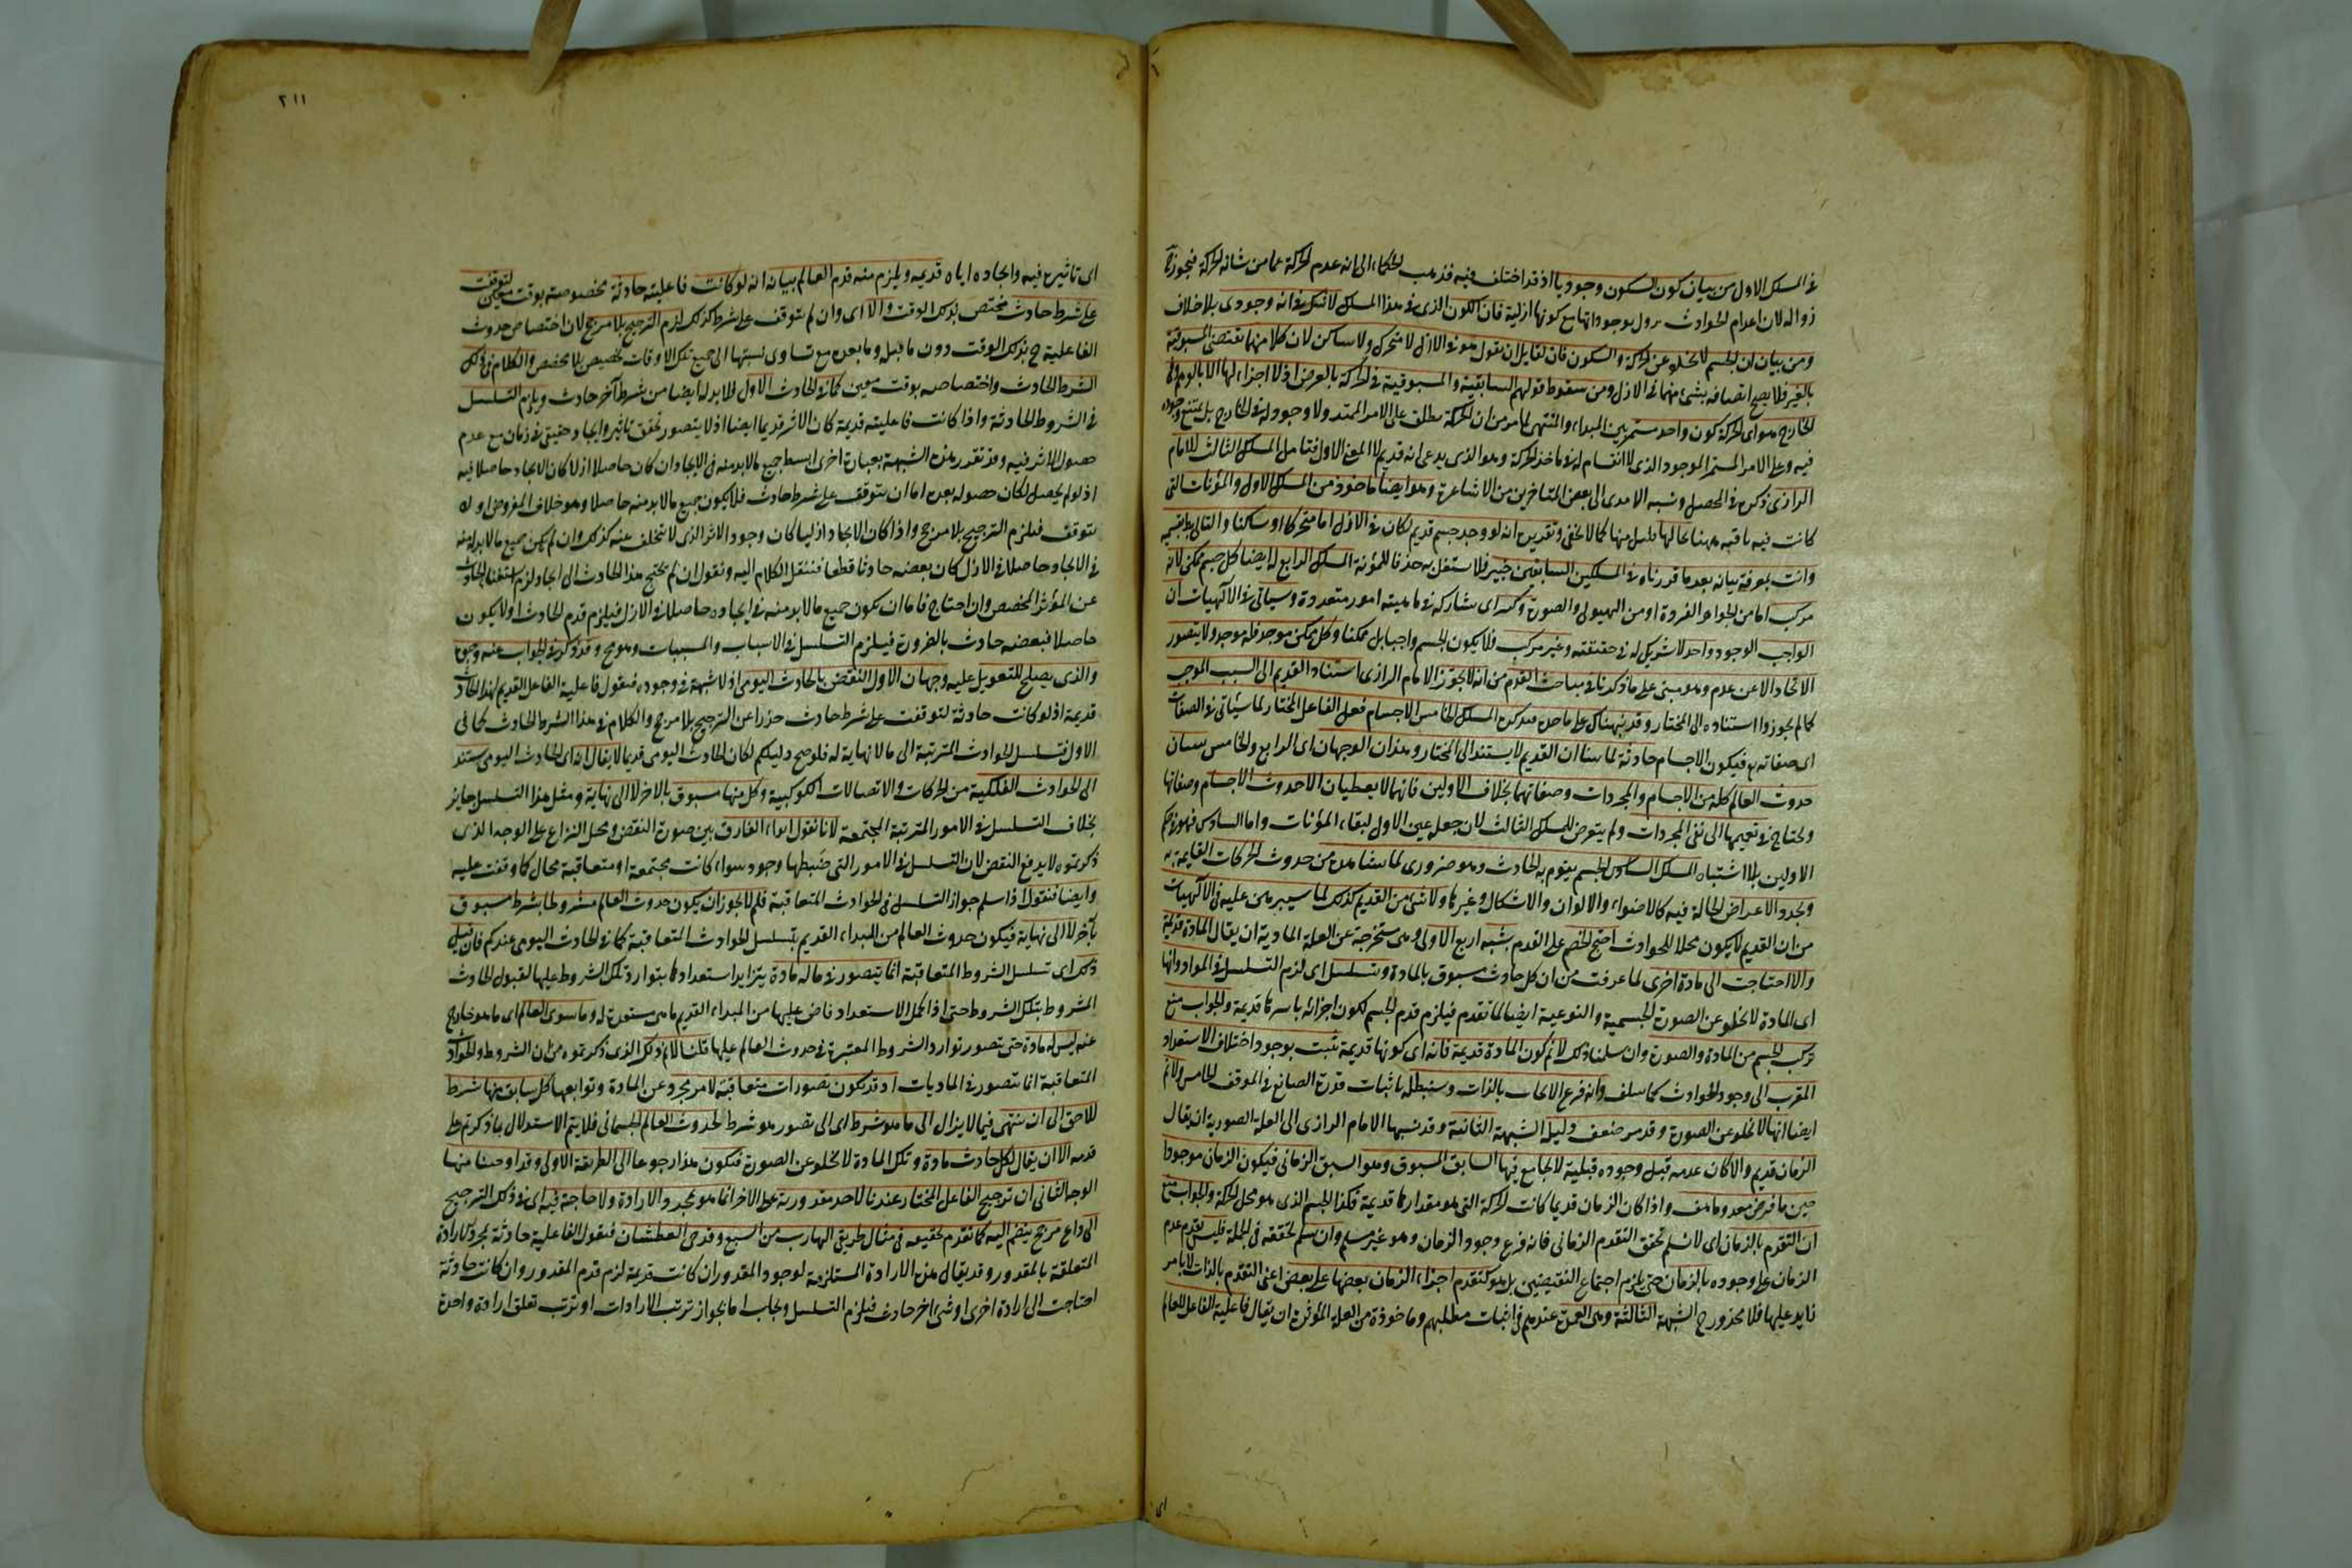 في المسلك الاول من بيان كون السكون وجوديا اذ قد اختلف فيه فذهب الحكماء الى انه عدم الحركة عما من شانه الحركة فيجوز
زواله لان اعدام الحوادث تزول بوجوداتها مع كونها ازلية فان الكون الذي في هذا المسلك لا شك في انه وجودي بلا خلاف
ومن بيان ان الجسم لا يخلو عن الحركة والسكون فان لقايل ان يقول هو في الازل لا متحرك ولا ساكن لان كلا منهما يقتضي المسبوقية
بالغير فلا يصح اتصافه بشئ منهما في الازل ومن سقوط قولهم السابقية والمسبوقية في الحركة بالعرض اذ لا اجزاء لها الا بالوهم
الخارج هو اى الحركة كون واحد مستمر بين المبداء والمنتهى لما مر من ان الحركة تطلق على الامر الممتد ولا وجود له في الخارج بل يمتنع وجوده
فيه وعلى الامر المستمر الموجود الذي لا انقسام له هو ماخذ الحركة وهو الذي يدعى انه قديم لا المعنى الاول فتامل المسلك الثالث للامام
الرازى ذكره في المحصل ونسبه الامدى الى بعض المتاخرين من الاشاعرة وهو ايضا ماخوذ من المسلك الاول والمؤنات التي
كانت فيه باقية ههنا بحالها كما لا يخفى وتقديره انه لو وجد جسم قديم لكان في الازل اما متحركا او ساكنا والتالي بقسميه
وانت بمعرفة بيانه بعد ما قدرناه في المسلكين السابقين خبير فلا ستغل به حذفا للمؤنة المسلك الرابع له ايضا كل جسم ممكن لانه
مركب اما من الجواهر الفردة او من الهيولى والصورة وكثير اى يشاركه في ماهيته امور متعددة وسياتي في الالهيات ان
الواجب الوجود واحد لا شريك له في حقيقته وغير مركب فلا يكون الجسم واجبا بل ممكنا وكل ممكن موجد فله موجد ولا يتصور
الايجاد الا عن عدم وهو مبنى على ما ذكرنا في مباحث القدم من انه لا يجوز الامام الرازى استناد القديم الى السبب الموجب
كما لم يجوزوا استناده الى المختار وقد نبهناك على ما هو المسلك الخامس الاجسام فعل الفاعل المختار لما سياتي في الصفات
اى صفاته تع فيكون الاجسام حادثة لما بينا ان القديم لا يستند الى المختار وهذان الوجهان اى الرابع والخامس يثبتان
حدوث العالم كله من الاجسام والمجردات وصفاتهما بخلاف الاولين فانهما لا يعطيان الا حدوث الاجسام وصفاتها
ويحتاج في تعميمها الى نفى المجردات ولم يتعرض للمسلك الثالث لان جعله عين الاول لبقاء المؤنات واما السادس فهو في حكم
الاولين بلا اشتباه المسلك السادس الجسم يقوم به الحادث وهو ضرورى لما نشاهده من حدوث الحركات القايمة به
وتجدد الاعراض الحالة فيه كالاضواء والالوان والاشكال وغيرها ولا شئ من القديم كذلك لما سيبرهن عليه في الالهيات
من ان القديم لا يكون محلا للحوادث احتج الخصم على القدم بشبه اربع الاولى وهي مستخرجة عن العلة المادية ان يقال المادة قديمة
والا احتاجت الى مادة اخرى لما عرفت من ان كل حادث مسبوق بالمادة وتسلسل اى لزم التسلسل في المواد وانها
اى المادة لا تخلو عن الصورة الجسمية والنوعية ايضا لما تقدم فيلزم قدم الجسم لكون اجزائه باسرها قديمة والجواب منع
تركب الجسم من المادة والصورة وان سلمنا ذلك لا نم كون المادة قديمة فانه اى كونها قديمة يثبت بوجود اختلاف الاستعداد
المقرب الى وجود الحوادث كما سلف وانه فرع الايجاب بالذات وسنبطله باثبات قدرة الصانع في الموقف الخامس ولا نم
ايضا انها لا تخلو عن الصورة وقد مر ضعف دليله الشبهة الثانية وقد نسبها الامام الرازى الى العلة الصورية ان يقال
الزمان قديم والا كان عدمه قبل وجوده قبلية لا يجامع فيها السابق المسبوق وهو السبق الزماني فيكون الزمان موجودا
حين ما فرض معدوما هف واذا كان الزمان قديما كانت الحركة التي هو مقدارها قديمة فكذا الجسم الذي هو محل الحركة والجواب منع
ان التقدم بالزمان اى لا نسلم تحقق التقدم الزماني فانه فرع وجود الزمان وهو غير مسلم وان سلم تحققه في الجملة فليس تقدم عدم
الزمان على وجوده بالزمان حتى يلزم اجتماع النقيضين بل هو كتقدم اجزاء الزمان بعضها على بعض اعنى التقدم بالذات لا بامر
زايد عليها فلا محذور ح الشبهة الثالثة وهي العمدة عندهم في اثبات مطلبهم وماخوذة من العلة المؤثرة ان يقال فاعلية الفاعل للعالم
اى
٢١١
اى تاثيره فيه وايجاده اياه قديمة ويلزم منه قدم العالم بيانه انه لو كانت فاعليته حادثة مخصوصة بوقت معين لتوقفت
على شرط حادث مختص بذلك الوقت والا اى وان لم تتوقف على شرط كذلك لزم الترجيح بلا مرجح لان اختصاص حدوث
الفاعلية ح بذلك الوقت دون ما قبله وما بعده مع تساوى نسبتها الى جميع تلك الاوقات تخصيص بلا مخصص والكلام في ذلك
الشرط الحادث واختصاصه بوقت معين كما في الحادث الاول فلا بد له ايضا من شرط آخر حادث ويلزم التسلسل
في الشروط الحادثة واذا كانت فاعليته قديمة كان الاثر قديما ايضا اذ لا يتصور تحقق تاثير وايجاد حقيقى في زمان مع عدم
حصول الاثر فيه وقد تقرر هذه الشبهة بعبارة اخرى ابسط جميع ما لابد منه في الايجاد ان كان حاصلا ازلا كان الايجاد حاصلا فيه
اذ لو لم يحصل لكان حصوله بعده اما ان يتوقف على شرط حادث فلا يكون جميع ما لابد منه حاصلا وهو خلاف المفروض او لا
يتوقف فيلزم الترجيح بلا مرجح واذا كان الايجاد ازليا كان وجود الاثر الذي لا يتخلف عنه كذلك وان لم يكن جميع ما لابد منه
في الايجاد حاصلا في الازل كان بعضه حادثا قطعا فننقل الكلام اليه ونقول ان لم يحتج هذا الحادث الى ايجاد لزم استغناء الحادث
عن المؤثر المخصص وان احتاج فاما ان يكون جميع ما لابد منه في ايجاده حاصلا في الازل فيلزم قدم الحادث او لا يكون
حاصلا فبعضه حادث بالضرورة فيلزم التسلسل في الاسباب والمسببات وهو مح وقد ذكر في الجواب عنه وجوه
والذي يصلح للتعويل عليه وجهان الاول النقض بالحادث اليومى اذ لا شبهة في وجوده فنقول فاعلية الفاعل القديم لهذا الحادث
قديمة اذ لو كانت حادثة لتوقفت على شرط حادث حذرا عن الترجيح بلا مرجح والكلام في هذا الشرط الحادث كما في
الاول فتسلسل الحوادث المترتبة الى ما لا نهاية له فلو صح دليلكم لكان الحادث اليومى قديما لا يقال انه اى الحادث اليومى مستند
الى الحوادث الفلكية من الحركات والاتصالات الكوكبية وكل منها مسبوق بالاخر لا الى نهاية ومثل هذا التسلسل جايز
بخلاف التسلسل في الامور المترتبة المجتمعة لانا نقول ابداء الفارق بين صورة النقض ومحل النزاع على الوجه الذي
ذكرتموه لا يدفع النقض لان التسلسل في الامور التي ضبطها وجود سواء كانت مجتمعة او متعاقبة محال كما وقفت عليه
وايضا فنقول اذا سلم جواز التسلسل في الحوادث المتعاقبة فلم لا يجوز ان يكون حدوث العالم مشروطا بشرط مسبوق
بآخر لا الى نهاية فيكون حدوث العالم من المبداء القديم بتسلسل الحوادث المتعاقبة كما في الحادث اليومى عندكم فان قيل
ذلك اى تسلسل الشروط المتعاقبة انما يتصور في ما له مادة يتزايد استعدادها بتوارد تلك الشروط عليها لقبول الحادث
المشروط بتلك الشروط حتى اذا كمل الاستعداد فاض عليها من المبداء القديم ما هي مستعدة له وما سوى العالم اى ما هو خارج
عنه ليس له مادة حتى يتصور توارد الشروط المعتبرة في حدوث العالم عليها قلنا لا نم ذلك الذي ذكرتموه من ان الشروط والحوادث
المتعاقبة انما تتصور في الماديات اذ قد يكون تصورات متعاقبة لامر مجرد عن المادة وتوابعها كل سابق منها شرط
للاحق الى ان ينتهى فيما لا يزال الى ما هو شرط اى الى تصور هو شرط لحدوث العالم الجسماني فلا يتم الاستدلال بما ذكرتم على
قدمه الا ان يقال لكل حادث مادة وتلك المادة لا تخلو عن الصورة فيكون هذا رجوعا الى الطريقة الاولى وقد اوضحنا فسادها
الوجه الثاني ان ترجيح الفاعل المختار عندنا لاحد مقدوريه على الاخر انما هو بمجرد الارادة ولا حاجة فيه اى في ذلك الترجيح
الى داع مرجح ينضم اليه كما تقدم تحقيقه في مثال طريقى الهارب من السبع وقدحى العطشان فنقول الفاعلية حادثة بمجرد الارادة
المتعلقة بالمقدور وقد يقال هذه الارادة المستلزمة لوجود المقدور ان كانت قديمة لزم قدم المقدور وان كانت حادثة
احتاجت الى ارادة اخرى او شئ اخر حادث فيلزم التسلسل ويجاب اما بجواز ترتب الارادات او ترتب تعلق ارادة واحدة